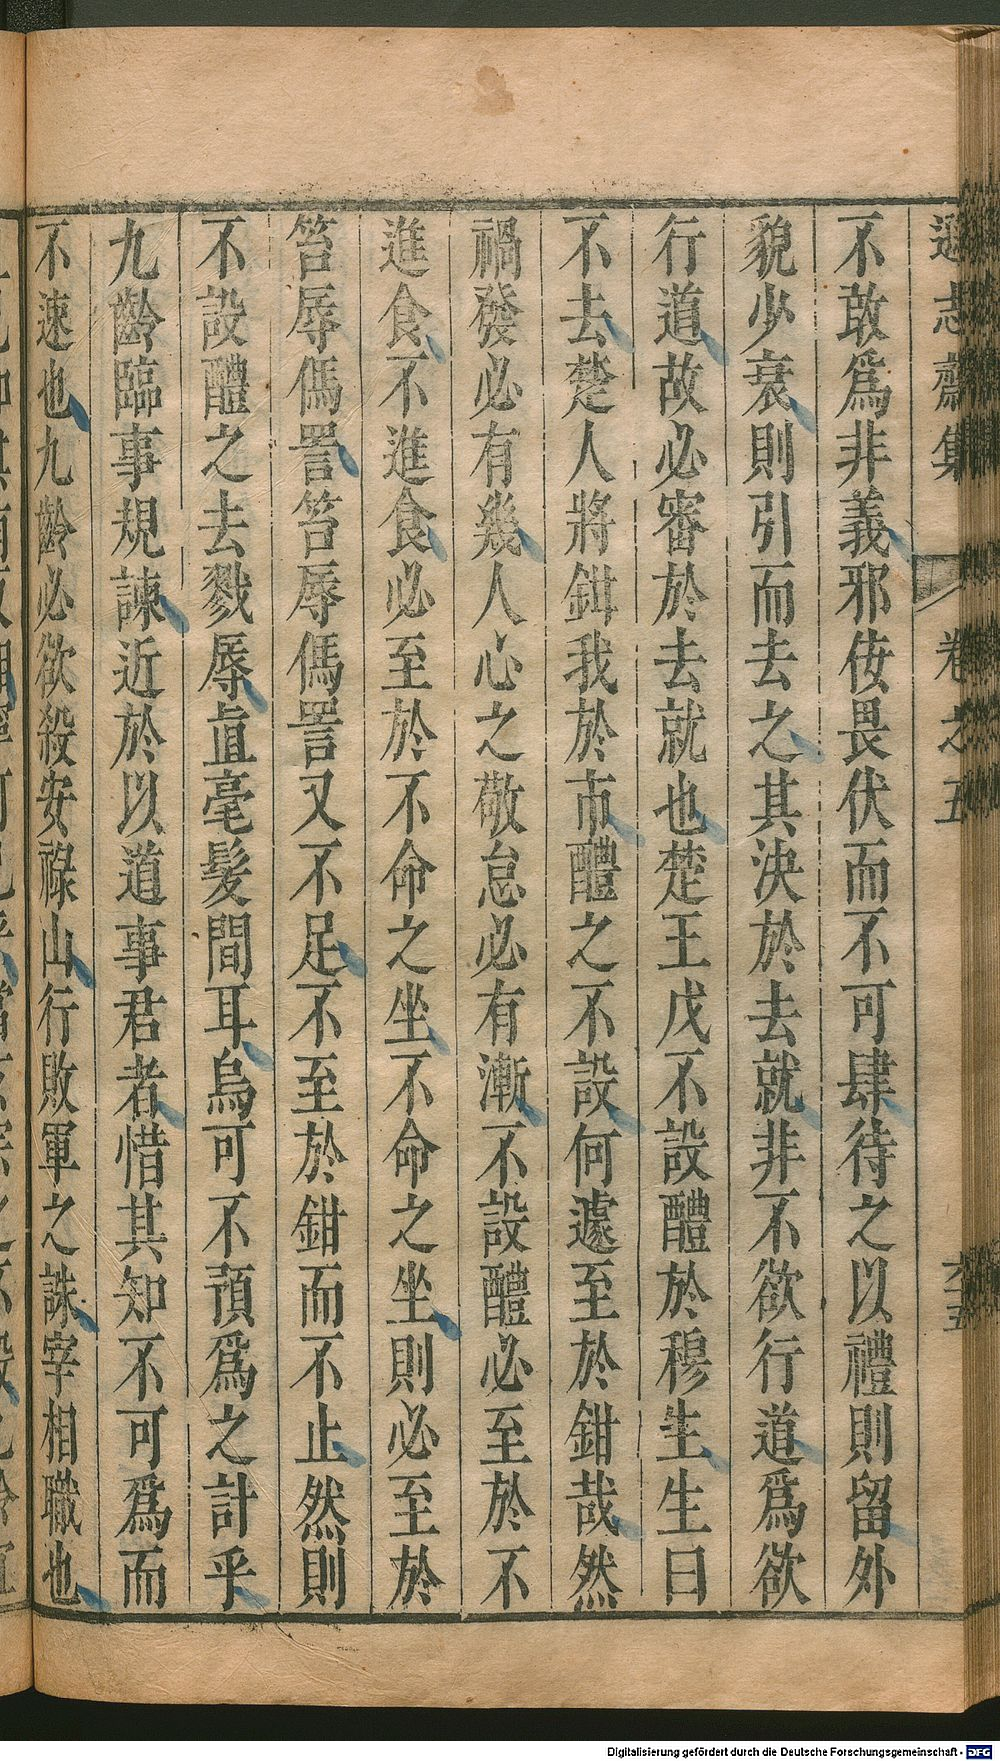 遜志齋集 卷之五 六五
不敢爲非義邪侫畏伏而不可肆待之以禮則留外
貌少衰則引而去之其決於去就非不欲行道爲欲
行道故必審於去就也楚王戊不設醴於穆生生曰
不去楚人將鉗我於市醴之不設何遽至於鉗哉然
禍發必有幾人心之敬怠必有漸不設醴必至於不
進食不進食必至於不命之坐不命之坐則必至於
笞辱傌詈笞辱傌詈又不足不至於鉗而不止然則
不設醴之去戮辱直毫髮間耳烏可不預爲之計乎
九齡臨事規諫近於以道事君者惜其知不可爲而
不速也九齡必欲殺安祿山行敗軍之誅宰相職也
Digitalisierung gefördert durch die Deutsche Forschungsgemeinschaft - DFG